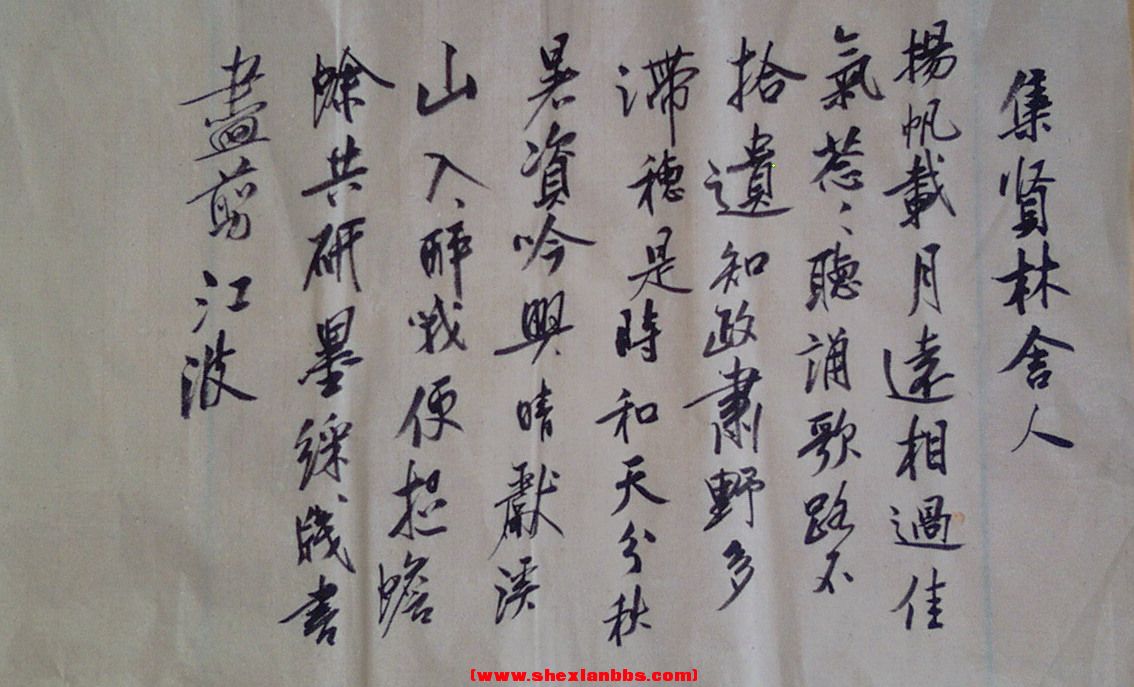 集贤林舍人
揚帆載月遠相過佳
氣葱〻聽誦歌路不
拾遺知政肅野多
滯穗是時和天分秋
暑資吟興晴獻溪
山入醉哦便捉蟾
蜍共研墨綵牋書
盡剪江波
(www.shexianbbs.com)